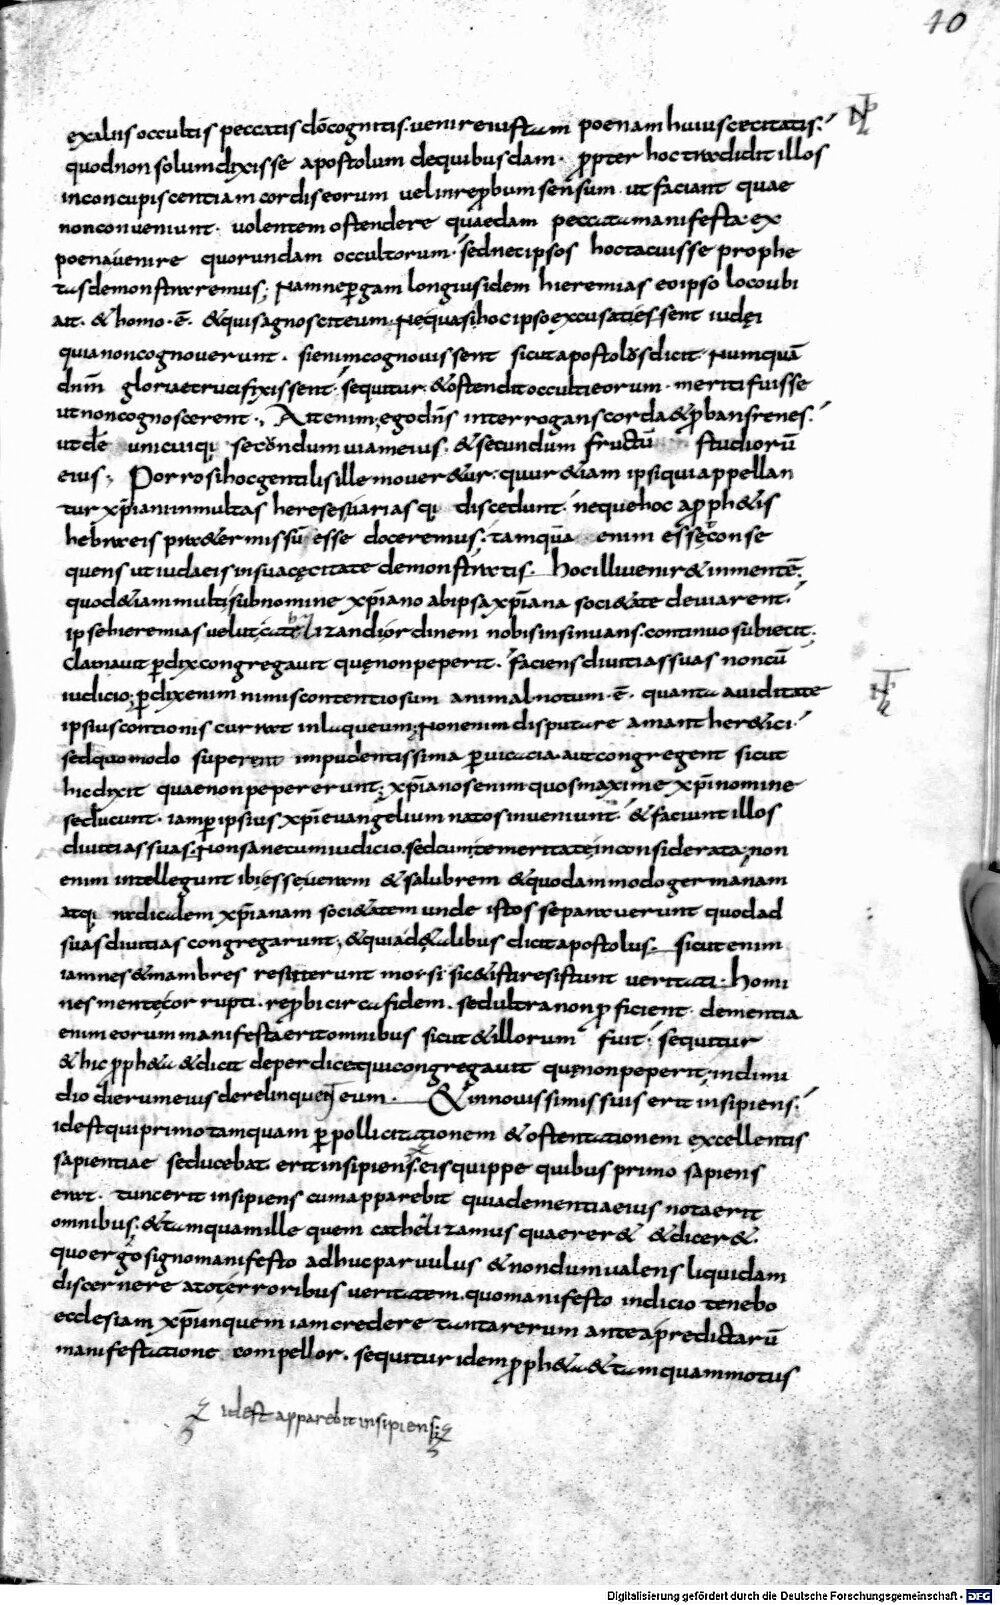 40
exaliis occultis peccatis dō cognitis. venire iustam poenam huius cecitatis:
quod non solum dixisse apostolum de quibusdam. ꝓpter hoc tradidit illos
in concupiscentiam cordis eorum vel in reꝓbum sensum. ut faciant quae
non conveniunt. volentem ostendere quaedam peccata manifesta. ex
poena venire quorundam occultorum. sed nec ipsos hoc tacuisse prophe
tas demonstraremus; Nam ne ꝑgam longius idem hieremias eo ipso loco ubi
ait. & homo .ē. & quis agnoscit eum. Ne quasi hoc ipso excusati essent iudęi
quia non cognoverunt. si enim cognovissent sicut apostolus dicit. Numquā
dnm̄ gloriae crucifixissent. sequitur. & ostendit occulti eorum meriti fuisse
ut non cognoscerent. Ait enim. ego dn̄s interrogans corda & ꝓbans renes.
ut dē unicuiqi secundum viam eius. & secundum fructū studiorū
eius; Porro si hoc gentilis ille mover&ur. quur &iam ipsi qui appellan
tur xp̄iani in multas hereses varias qi discedunt. neque hoc a ꝓph&is
hebraeis pra&ermissū esse doceremus. tamquā enim ess& conse
quens ut iudaeis in sua cęcitate demonstratis. hoc illi venir& in mentē.
quod &iam multi sub nomine xp̄iano ab ipsa xp̄iana soci&ate deviarent.
ipse hieremias velut catechizandi ordinem nobis insinuans. continuo subiecit;
Clamavit ꝑdix congregavit quę non peperit. faciens divitias suas non cū
iudicio; ꝑdix enim nimis contentiosum animal notum .ē. quanta aviditate
ipsius contionis currat in laqueum; Non enim disputare amant her&ici.
sed quomodo superent impudentissima ꝑvicacia. aut congregent sicut
hic dixit quae non pepererunt; xp̄ianos enim quos maxime xp̄i nomine
seducunt. iam ꝑ ipsius xp̄i evangelium natos inveniunt. & faciunt illos
divitias suas. Non sane cum iudicio. sed cum temeritate inconsiderata; non
enim intellegunt ibi esse veram & salubrem & quodammodo germanam
atqi radicalem xp̄ianam soci&atem unde istos separaverunt quod ad
suas divitias congregarunt. & quia d& alibus dicit apostolus. sicut enim
iamnes & mambres restiterunt moysi. sic & isti resistunt veritati. Homi
nes mente corrupti. reꝓbi circa fidem. sed ultra non ꝓficient. dementia
enim eorum manifesta erit omnibus sicut & illorum fuit. sequitur
& hic ꝓph&a & dicit de perdice qui congregavit quę non peperit; in dimi
dio dierum eius derelinquent eum. & in novissimis suis erit insipiens.
id est qui primo tamquam ꝑ pollicitationem & ostentationem excellentis
sapientiae seducebat erit insipiens. eis quippe quibus primo sapiens
erat. tunc erit insipiens cum apparebit quia dementia eius nota erit
omnibus. & tamquam ille quem cathezizamus quaerer& & dicer&.
quo ergo signo manifesto adhuc parvulus & nondum valens liquidam
discernere a tot erroribus veritatem. quo manifesto indicio tenebo
ecclesiam xp̄i in quem iam credere tanta rerum ante apredictarū
manifestatione compellor. sequitur idem ꝓph&a & tamquam motus
id est apparebit insipiens;
Digitalisierung gefördert durch die Deutsche Forschungsgemeinschaft - DFG